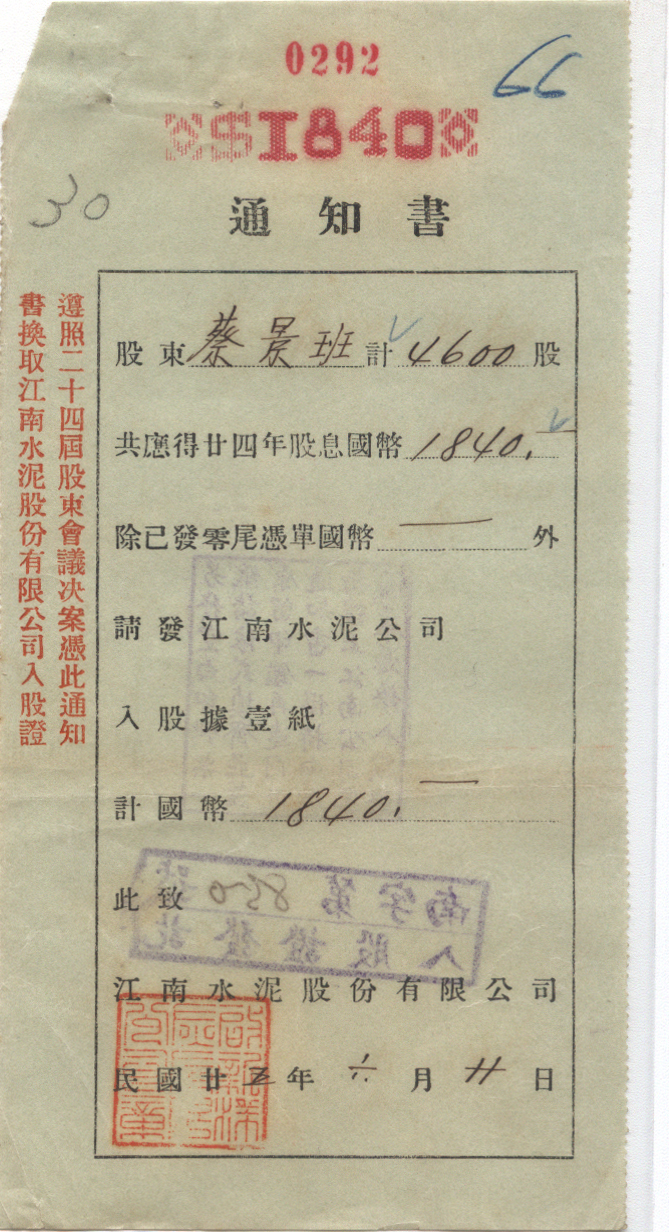 0292
$1840
66
30
通知書
遵照二十四屆股東會議決案憑此通知
書換取江南水泥股份有限公司入股證
股東蔡景班計4600股
共應得廿四年股息國幣1840.—
除已發零尾憑單國幣—外
請發江南水泥公司
入股據壹紙
計國幣1840.—
此致
南字第850號
入股證發訖
江南水泥股份有限公司
民國廿五年六月廿日